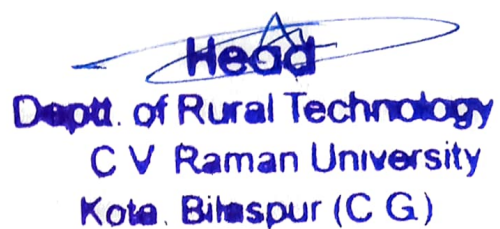 Head
Deptt. of Rural Technology
C V Raman University
Kota, Bilaspur (C G)